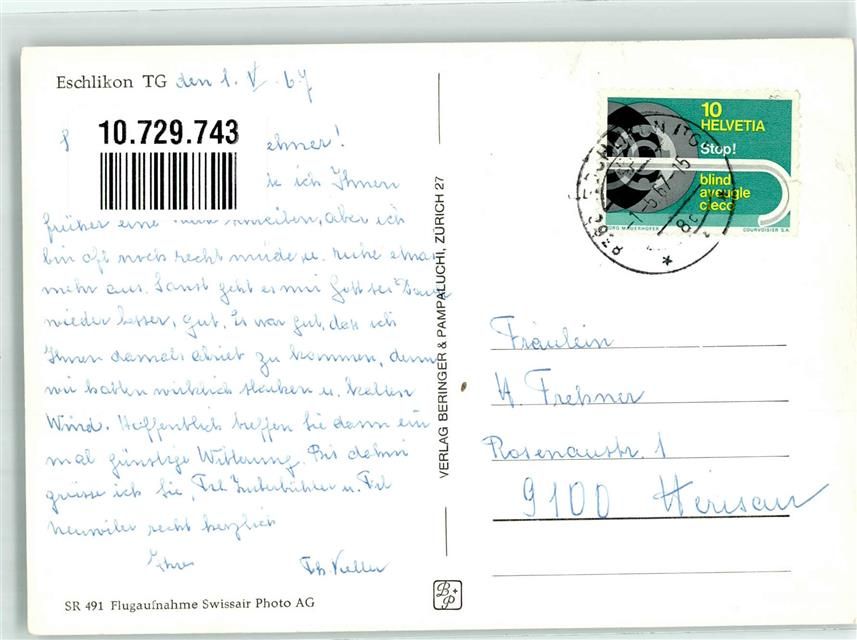 Eschlikon TG den 1. V. 67
10.729.743
ehner!
ie ich Ihnen
früher eine schreiben, aber ich
bin oft noch recht müde u. ruhe etwas
mehr aus. Sonst geht es mir Gott sei Dank
wieder besser, gut. Es war gut, dass ich
Ihnen damals abriet zu kommen, denn
wir hatten wirklich starken u. kalten
Wind. Hoffentlich treffen Sie dann ein
mal günstige Witterung. Bis dahin
grüsse ich Sie, Frl. u. Frl.
recht herzlich
Ihre Th.
SR 491 Flugaufnahme Swissair Photo AG
VERLAG BERINGER & PAMPALUCHI, ZÜRICH 27
B+P
10
HELVETIA
Stop!
blind
aveugle
cieco
GEORG MAUERHOFER
COURVOISIER S.A.
8360 ESCHLIKON (TG)
-1.-5.67-15
Fräulein
H. Frehner
Rosenaustr. 1
9100 Herisau